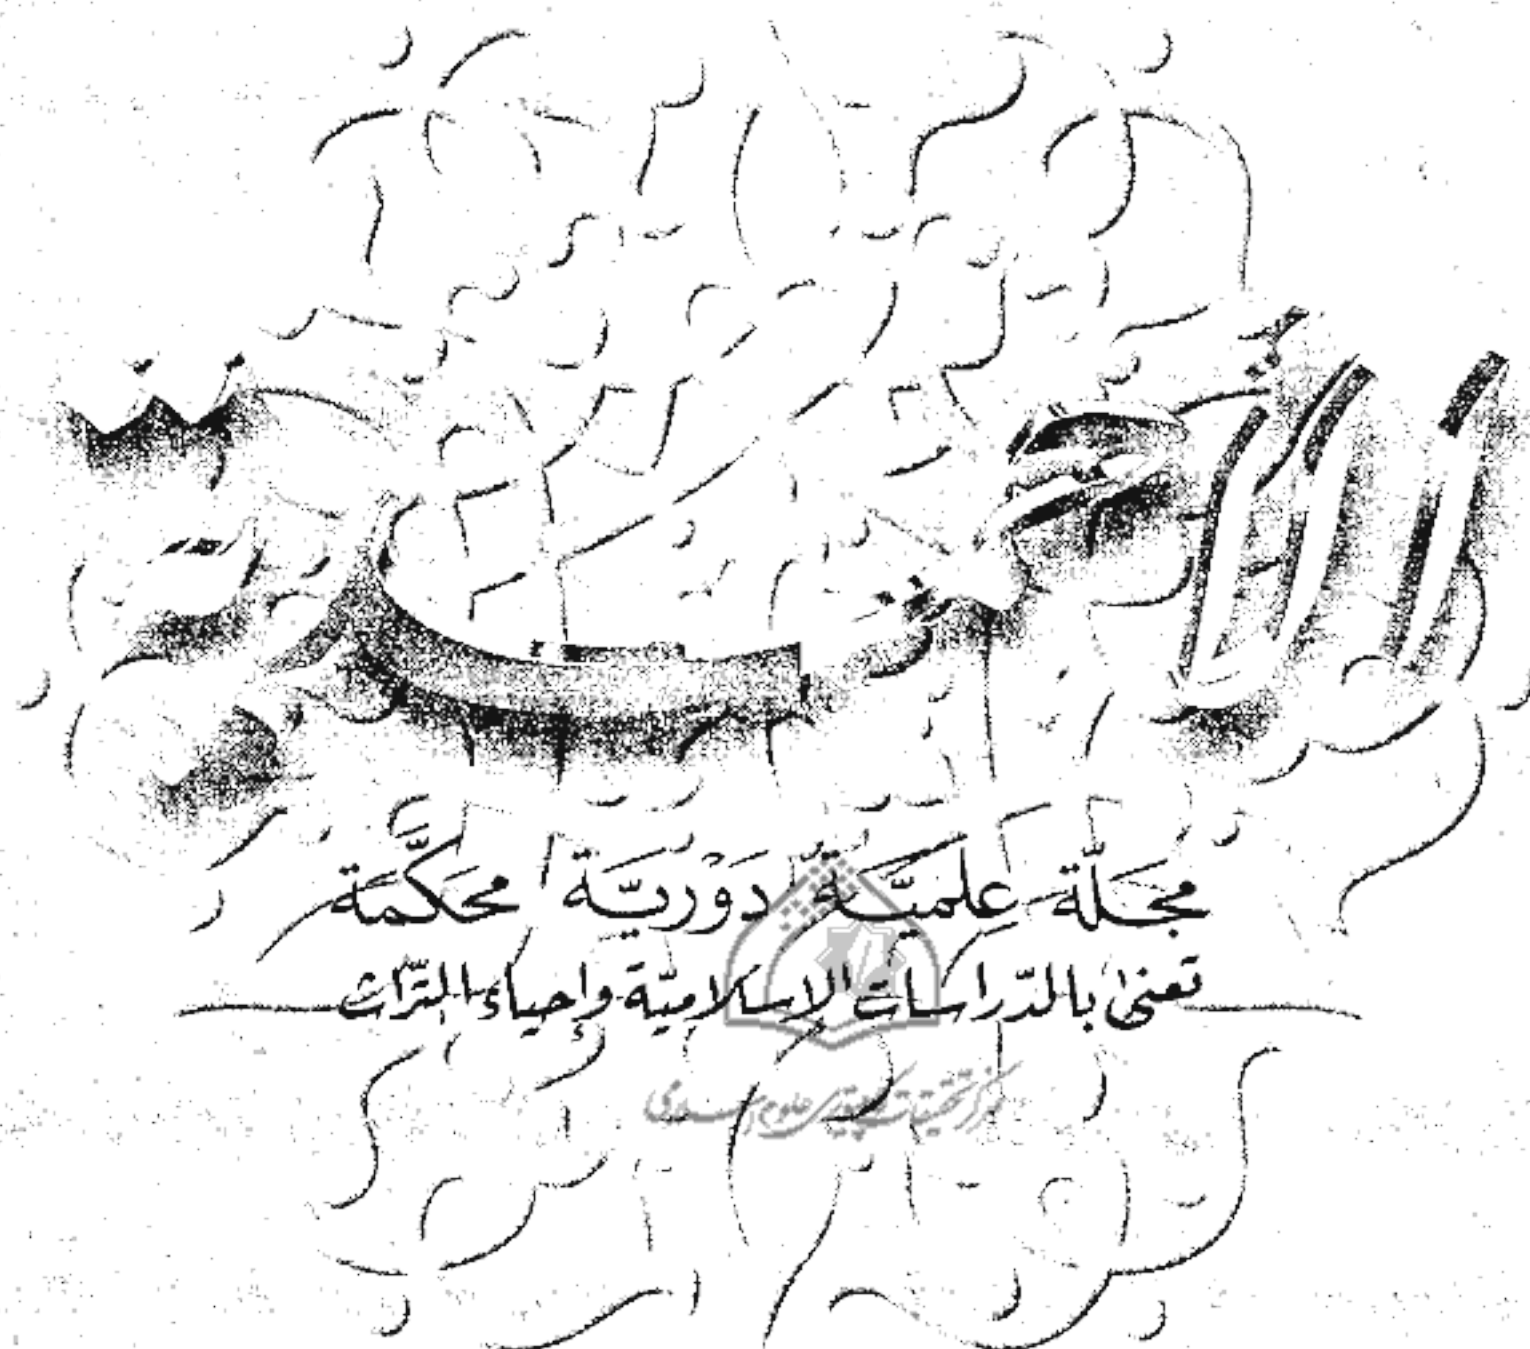 الأحمدية
مجلّة علميّة دَوْريّة محكَّمة
تعنى بالدّراسات الإسلاميّة وإحياء التّراث
مركز تحقيقات كامپيوترى علوم اسلامى